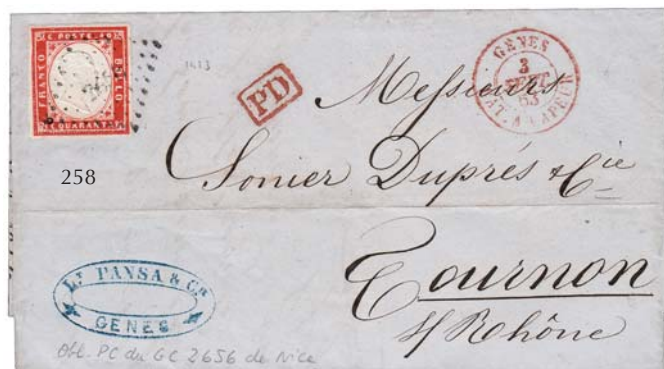 C. POSTE 40
FRANCO
BOLLO
C. QUARANTA
1413
PD
GENES
3
SEPT
63
BAT. A VAPEUR
Messieurs
258
Sonier Duprés & Cie
Tournon
s/Rhône
Lt. PANSA & Ce
GENES
Obl. PC du GC 2656 de Nice